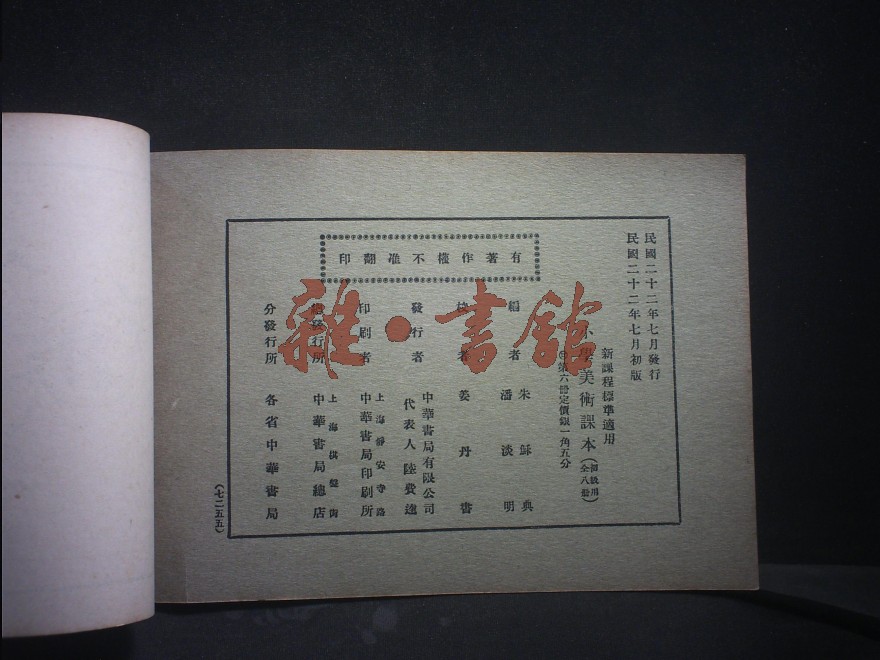 民國二十二年七月發行
民國二十二年七月初版
新課程標準適用
小學美術課本(初級用全八册)
第六冊定價銀一角五分
有著作權不准翻印
編者 朱穌典 潘淡明
校者 姜丹書
發行者 中華書局有限公司 代表人陸費逵
印刷者 上海靜安寺路 中華書局印刷所
總發行所 上海棋盤街 中華書局總店
分發行所 各省中華書局
(七二五五)
雜·書館